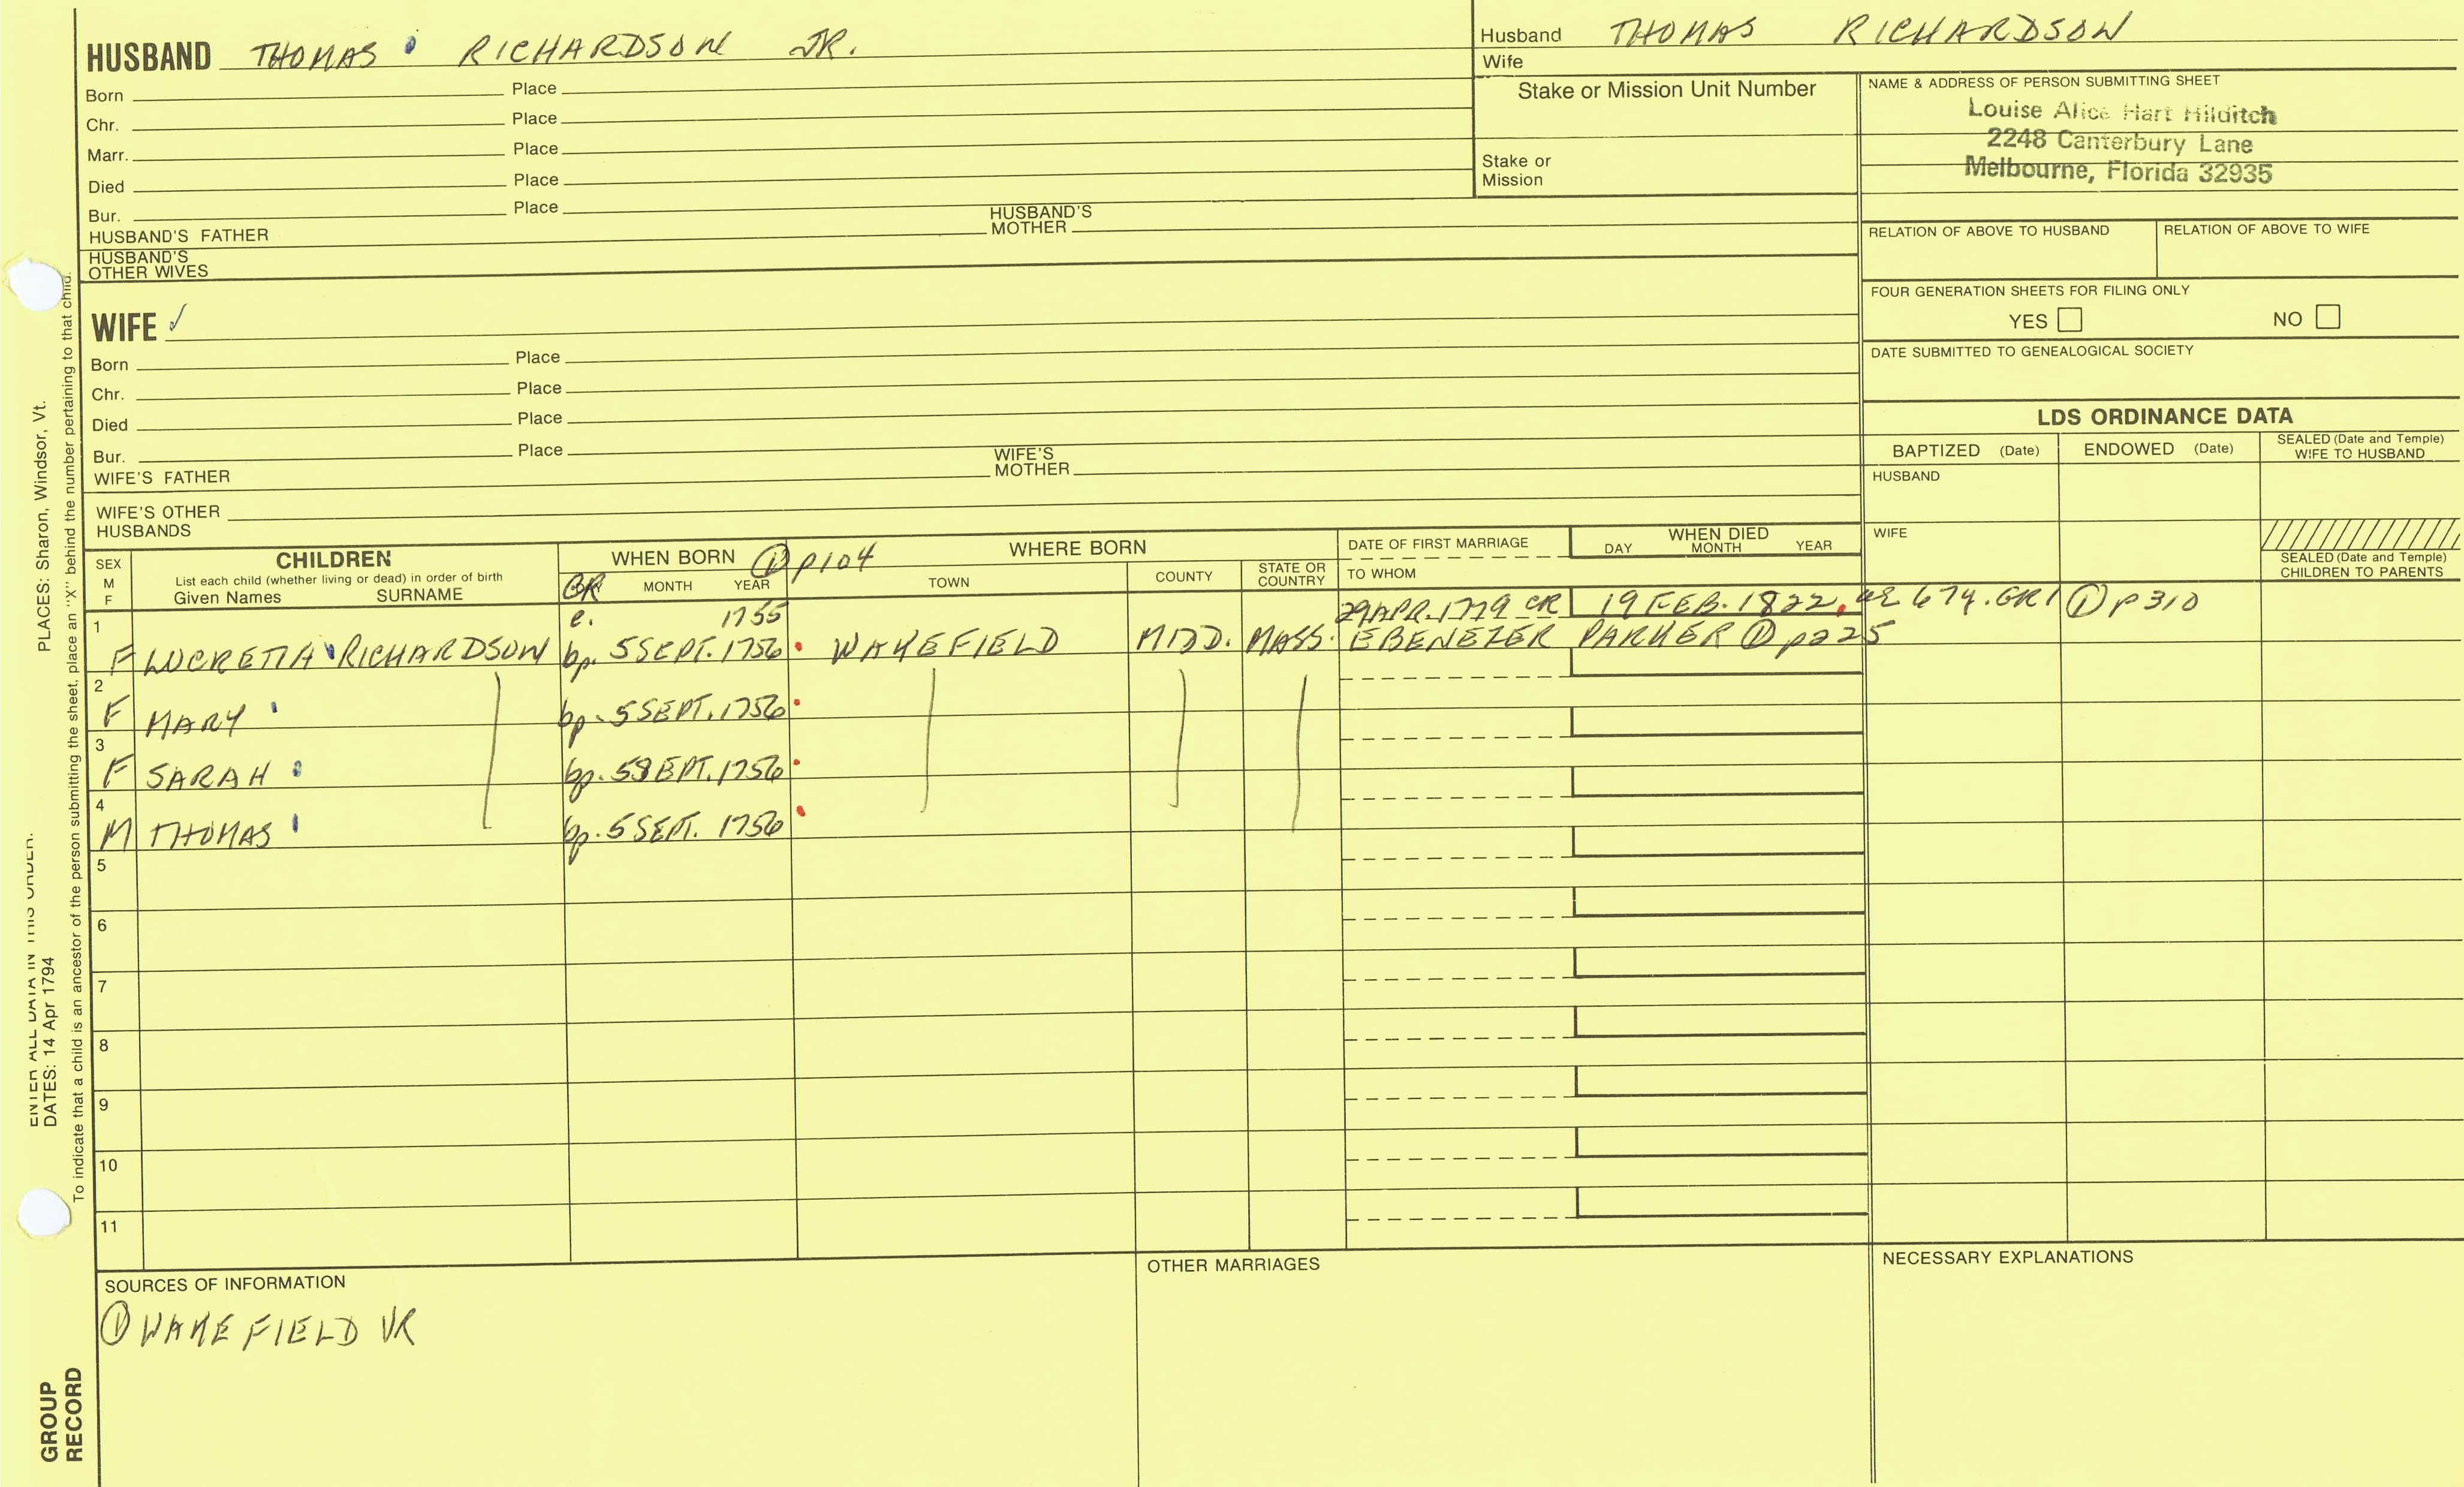 HUSBAND THOMAS RICHARDSON JR.
Born Place
Chr. Place
Marr. Place
Died Place
Bur. Place
HUSBAND'S FATHER HUSBAND'S MOTHER
HUSBAND'S OTHER WIVES
Husband THOMAS RICHARDSON
Wife
Stake or Mission Unit Number
Stake or Mission
NAME & ADDRESS OF PERSON SUBMITTING SHEET
Louise Alice Hart Hilditch
2248 Canterbury Lane
Melbourne, Florida 32935
RELATION OF ABOVE TO HUSBAND RELATION OF ABOVE TO WIFE
FOUR GENERATION SHEETS FOR FILING ONLY
YES NO
DATE SUBMITTED TO GENEALOGICAL SOCIETY
WIFE ✓
Born Place
Chr. Place
Died Place
Bur. Place
WIFE'S FATHER WIFE'S MOTHER
WIFE'S OTHER HUSBANDS
LDS ORDINANCE DATA
BAPTIZED (Date) ENDOWED (Date) SEALED (Date and Temple) WIFE TO HUSBAND
HUSBAND
WIFE
SEALED (Date and Temple) CHILDREN TO PARENTS
SEX M F
CHILDREN
List each child (whether living or dead) in order of birth
Given Names SURNAME
WHEN BORN ① p104
CR MONTH YEAR
WHERE BORN
TOWN COUNTY STATE OR COUNTRY
DATE OF FIRST MARRIAGE
TO WHOM
WHEN DIED
DAY MONTH YEAR
1 c. 1755 29 APR. 1779 CR 19 FEB. 1822, ae 67y. GR1 ① p310
F LUCRETIA RICHARDSON bp. 5 SEPT. 1756 WAKEFIELD MIDD. MASS. EBENEZER PARKER ① p225
2
F MARY bp. 5 SEPT. 1756
3
F SARAH bp. 5 SEPT. 1756
4
M THOMAS bp. 5 SEPT. 1756
5
6
7
8
9
10
11
SOURCES OF INFORMATION
① WAKEFIELD VR
OTHER MARRIAGES
NECESSARY EXPLANATIONS
GROUP RECORD
ENTER ALL DATA IN THIS ORDER:
DATES: 14 Apr 1794 PLACES: Sharon, Windsor, Vt.
To indicate that a child is an ancestor of the person submitting the sheet, place an "X" behind the number pertaining to that child.